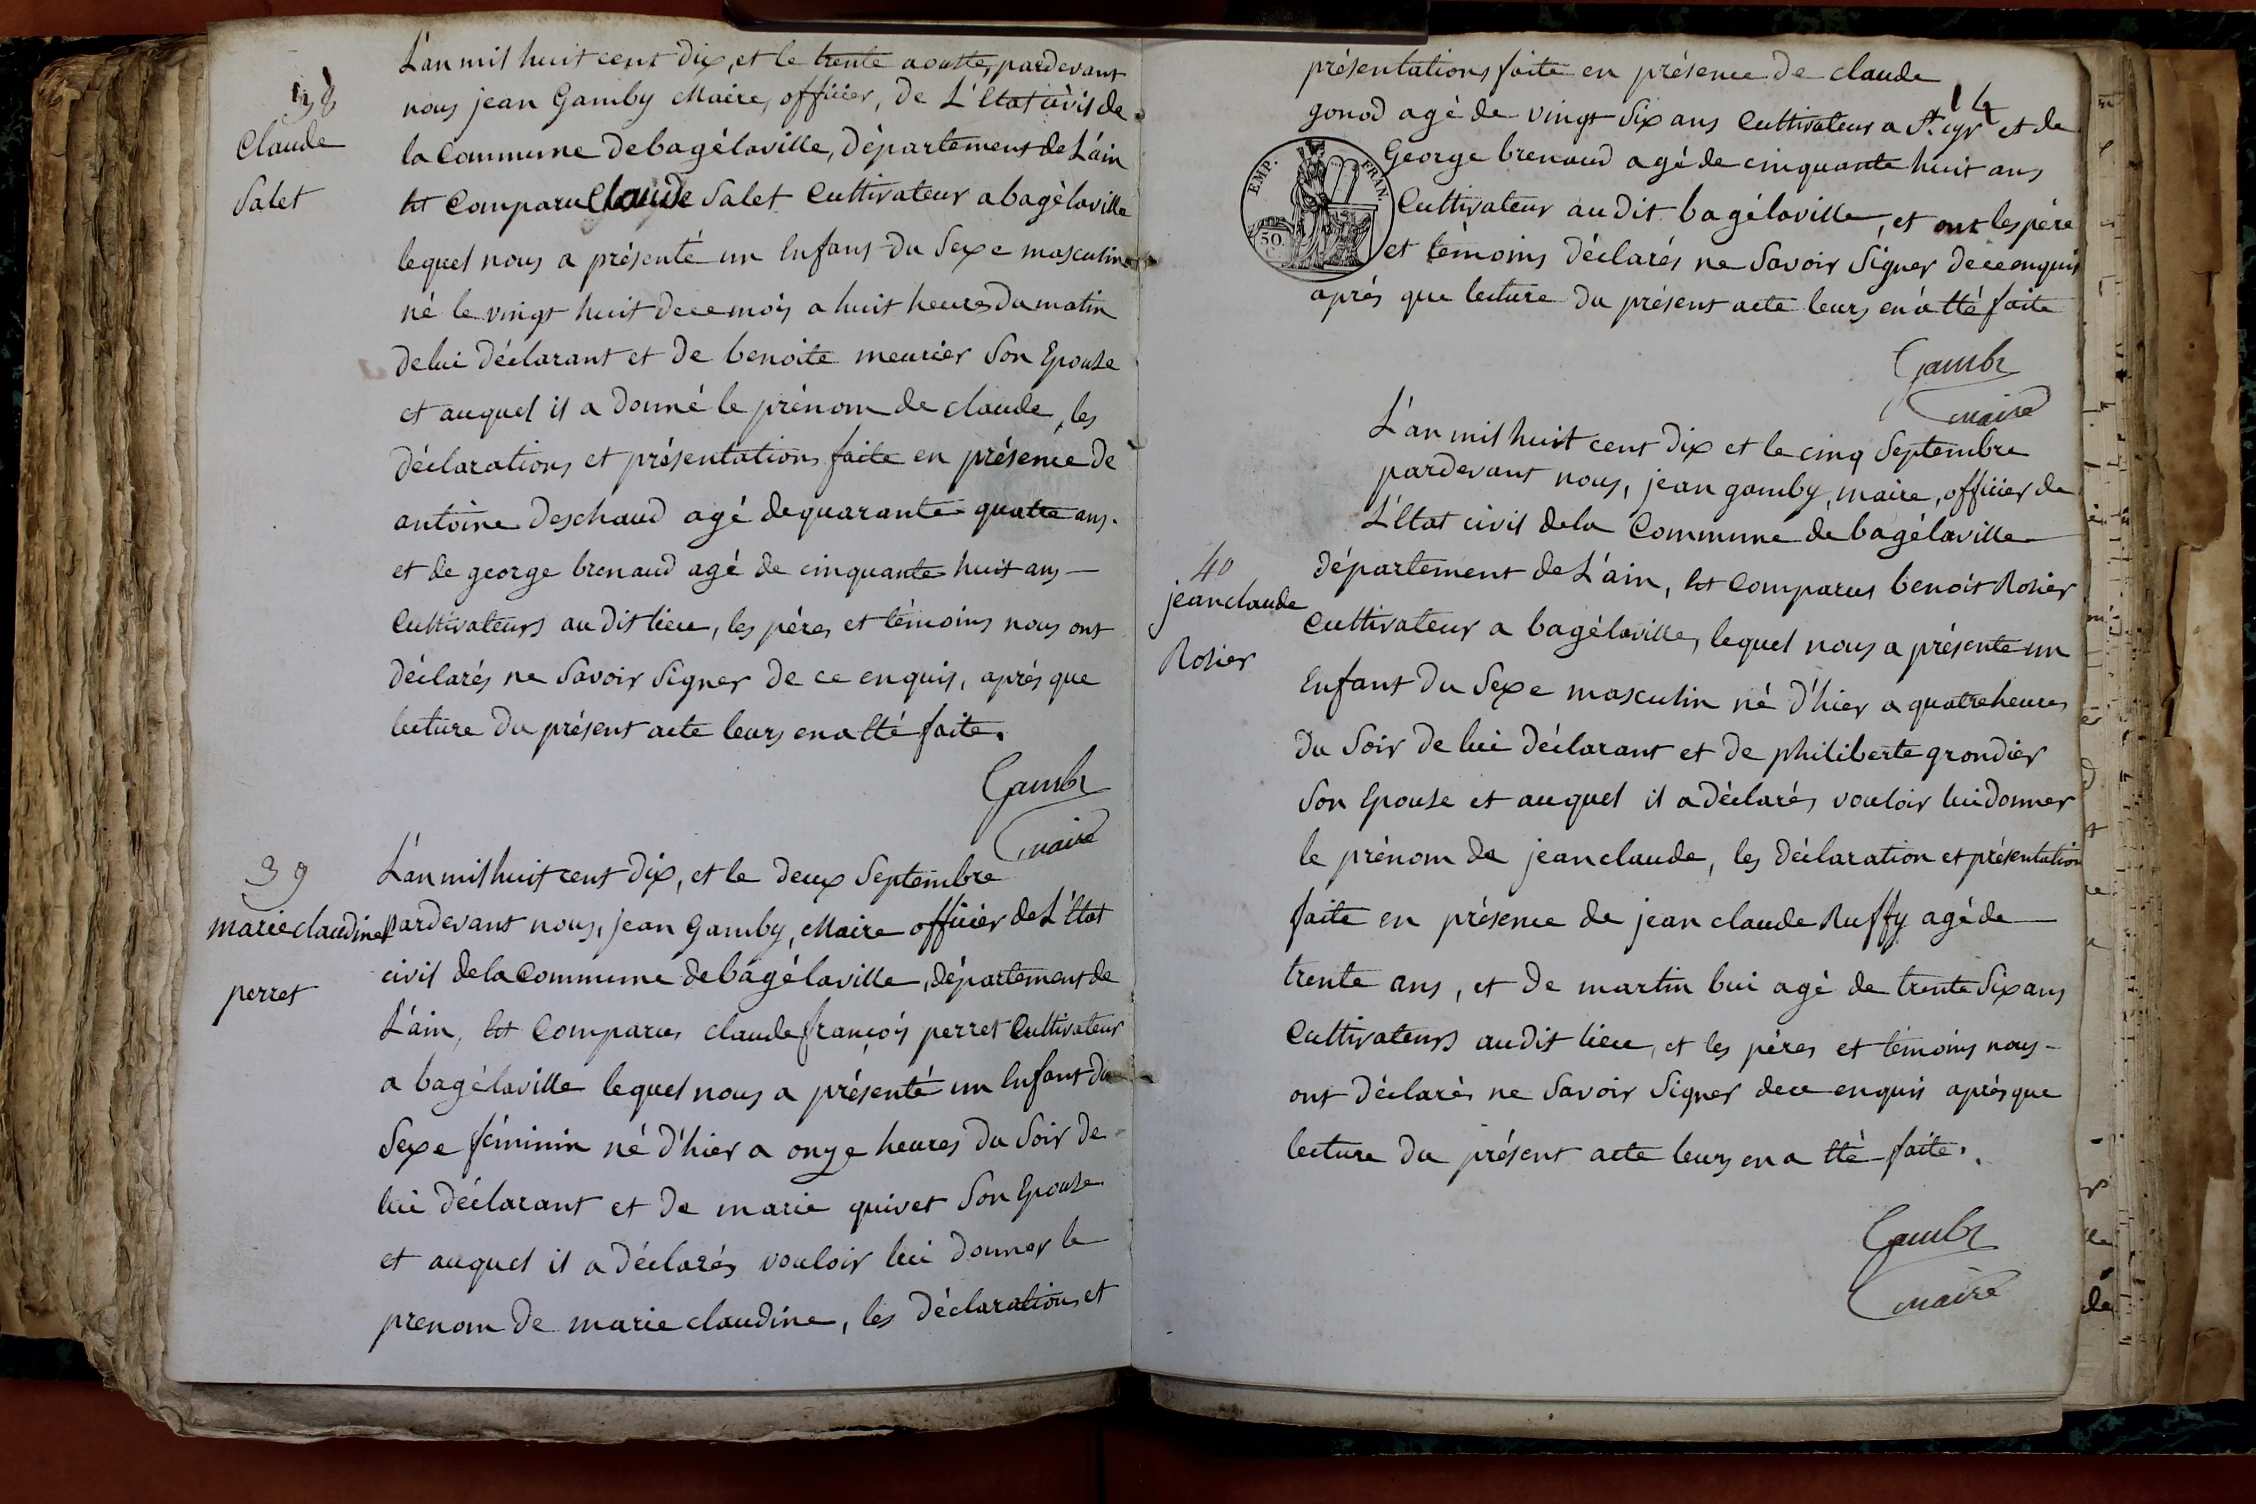 38
Claude
Salet
L'an mil huit cent dix, et le trente aoutte, pardevant
nous jean Gamby Maire, officier, de L'Etat civil de
la Commune de bagélaville, département de L'ain
Est Comparu Claude Salet Cultivateur a bagélaville
lequel nous a présenté un Enfant du Sexe masculin
né le vingt huit de ce mois a huit heures du matin
de lui déclarant et de benoite meurier Son Epouse
et auquel il a donné le prénom de claude, les
déclarations et présentations faite en présence de
antoine deschaud agé de quarante quatre ans.
et de george brenaud agé de cinquante huit ans
Cultivateurs au dit lieu, les pères et témoins nous ont
déclarés ne Savoir Signer de ce enquis, après que
lecture du présent acte leurs en a Eté faite.
Gamby
maire
39
marie claudine
perret
L'an mil huit cent dix, et le deux Septembre
pardevant nous, jean Gamby, Maire officier de L'Etat
civil de la Commune de bagélaville, département de
L'ain, Est Comparus claude françois perret Cultivateur
a bagélaville lequel nous a présenté un Enfant du
Sexe féminin né d'hier a onze heures du Soir de
lui déclarant et de marie quivet Son Epouse
et auquel il a déclarés vouloir lui donner le
prenom de marie claudine, les déclarations et
14
présentations faite en présence de claude
gonod agé de vingt Six ans Cultivateur a St. cyr et de
George brenaud agé de cinquante huit ans
Cultivateur au dit bagélaville, et ont les père
et témoins déclarés ne Savoir Signer de ce enquis
après que lecture du présent acte leurs en a Eté faite
EMP. FRAN.
50.
C
Gamby
maire
40
jean claude
Rosier
L'an mil huit cent dix et le cinq Septembre
pardevant nous, jean gamby, maire, officier de
L'Etat civil de la Commune de bagélaville
département de L'ain, Est Comparus benoit Rosier
Cultivateur a bagélaville, lequel nous a présente un
Enfant du Sexe masculin né d'hier a quatre heures
du Soir de lui déclarant et de philiberte grondier
Son Epouse et auquel il a déclarés vouloir lui donner
le prénom de jean claude, les déclaration et présentation
faite en présence de jean claude Ruffy agé de
trente ans, et de martin bui agé de trente Six ans
Cultivateurs au dit lieu, et les pères et témoins nous
ont déclarés ne Savoir Signer de ce enquis après que
lecture du présent acte leurs en a Eté faite.
Gamby
maire